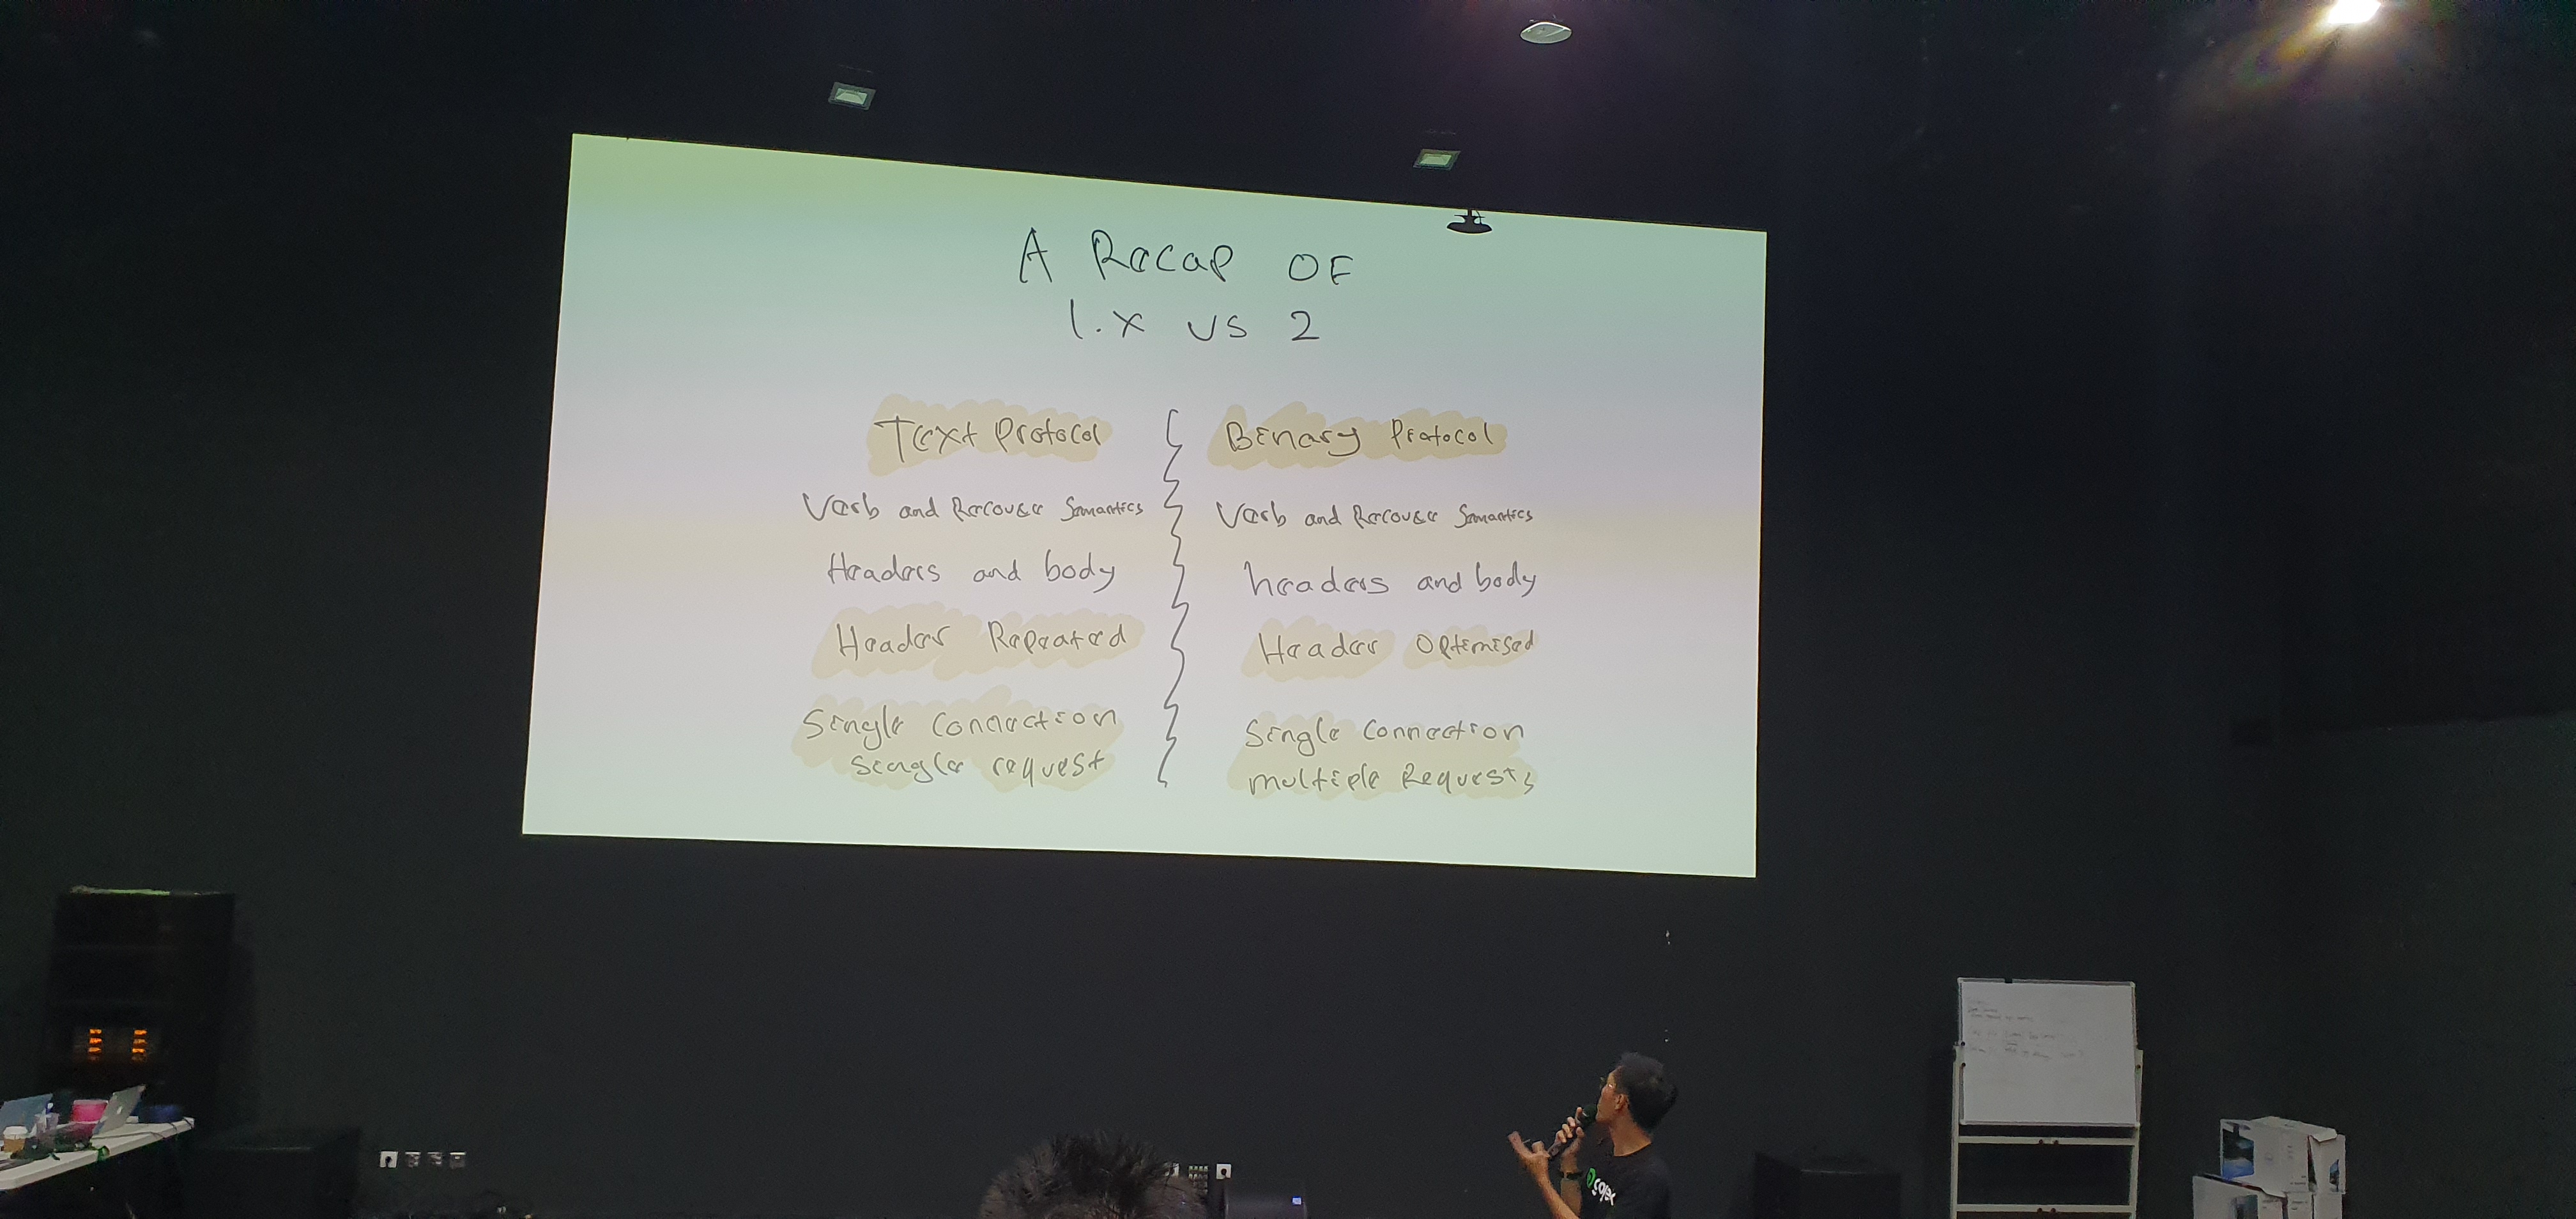 A Recap OF
1.x vs 2
Text Protocol
Verb and Recouse Semantics
Headers and body
Header Repeated
Single Connection
single request
Binary Protocol
Verb and Recouse Semantics
headers and body
Header Optimised
Single Connection
multiple Requests
gojek